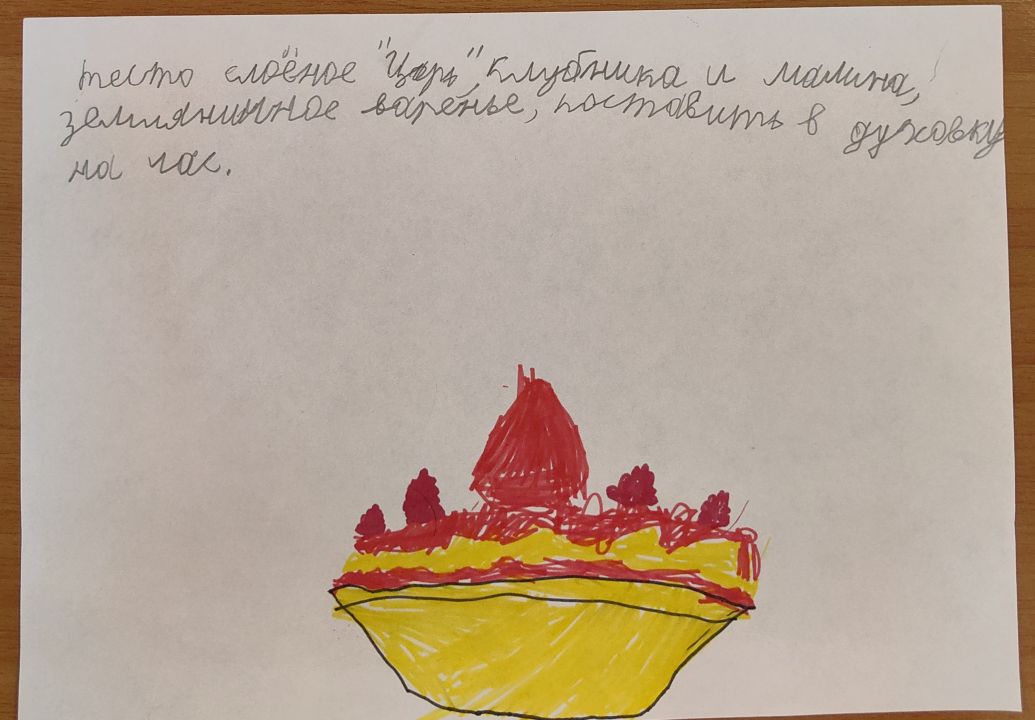 тесто слоёное "Царь", клубника и малина,
земляничное варенье, поставить в духовку
на час.